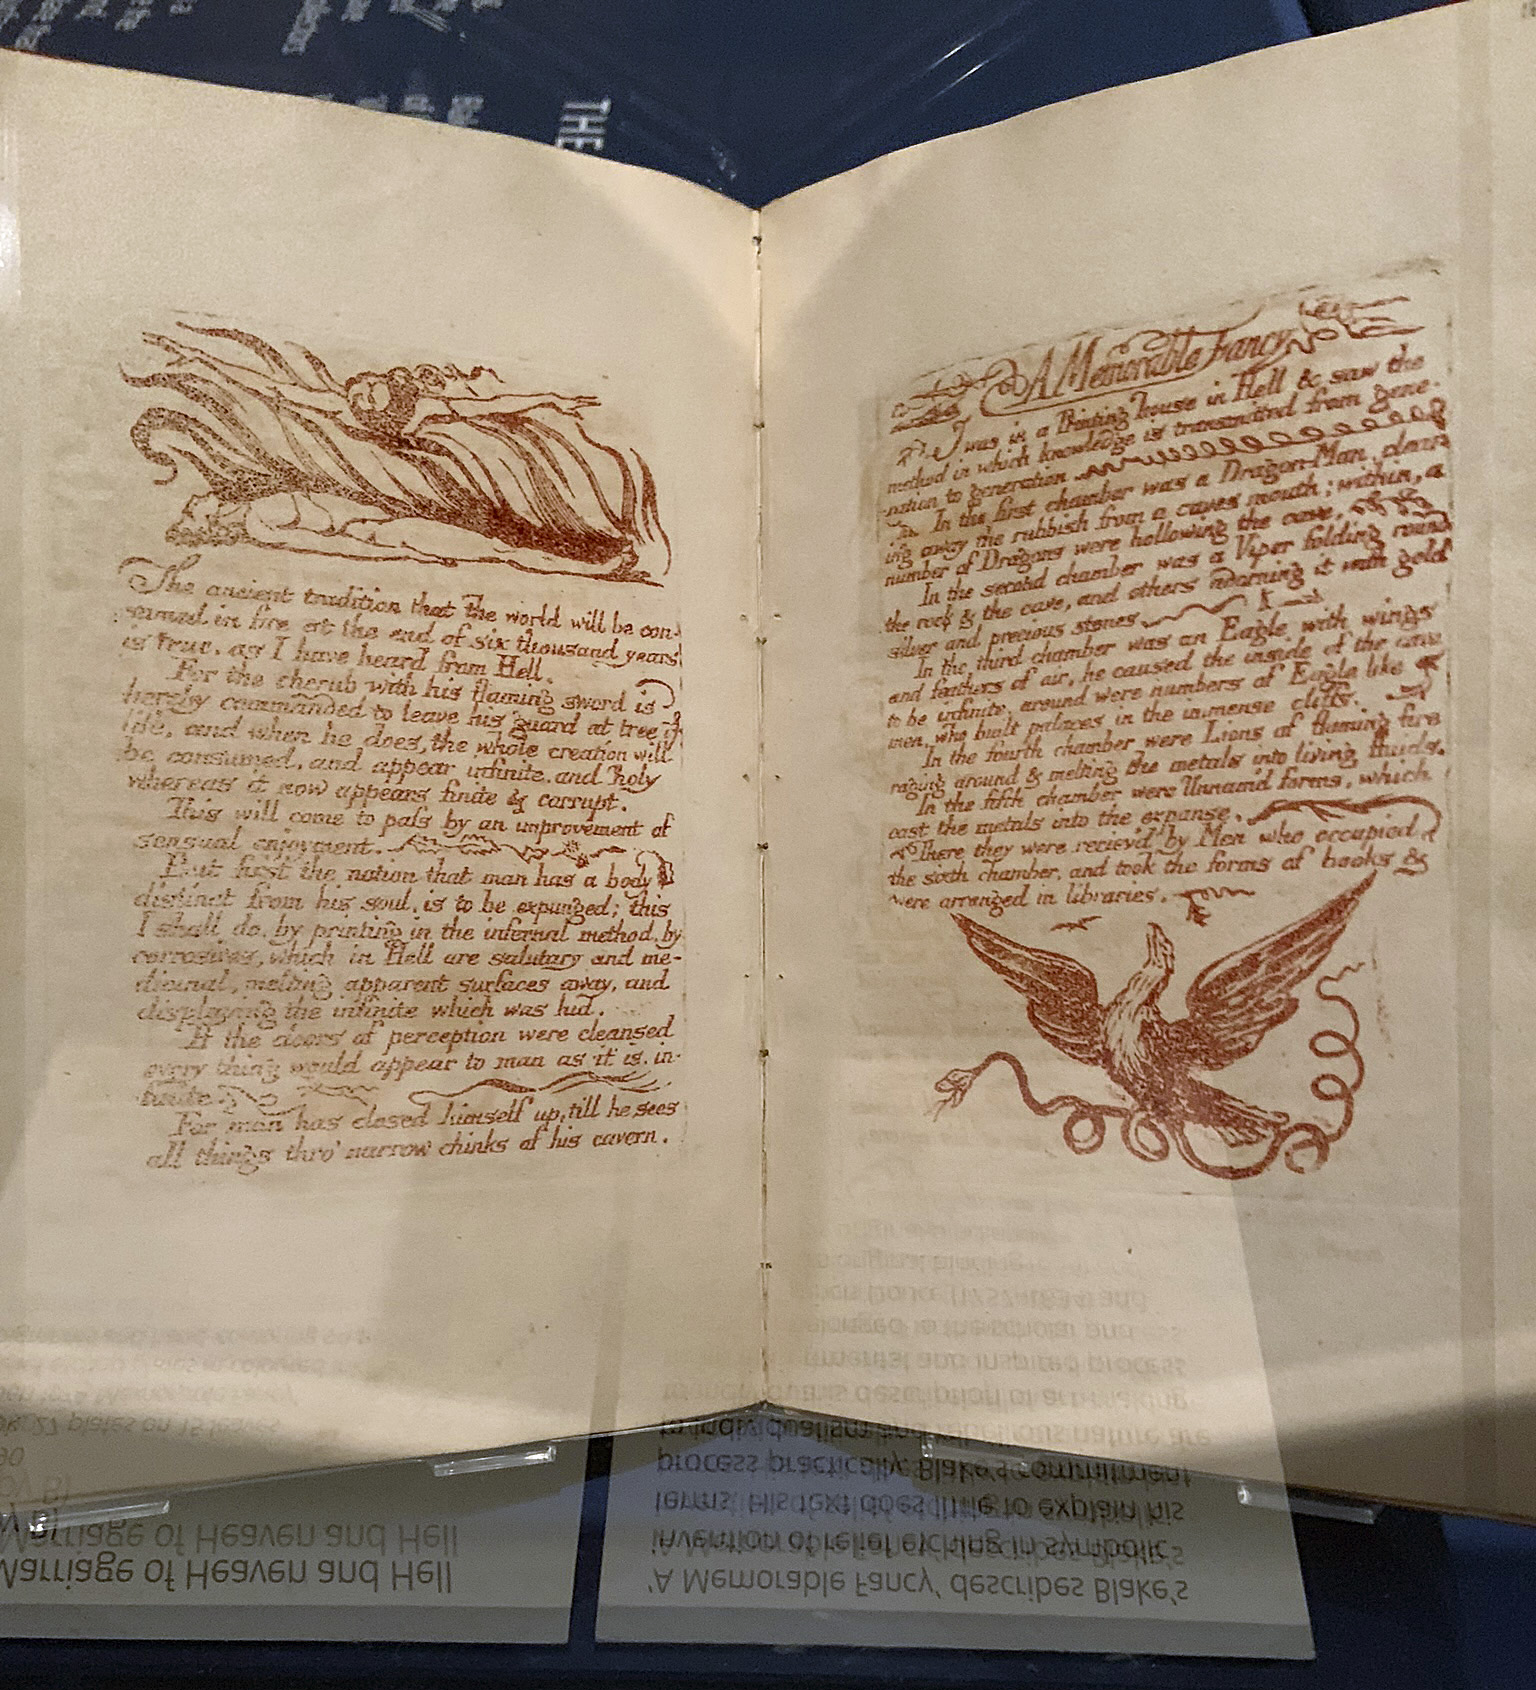 The ancient tradition that the world will be con-
-sumed in fire at the end of six thousand years
is true, as I have heard from Hell.
For the cherub with his flaming sword is
hereby commanded to leave his guard at tree of
life, and when he does, the whole creation will
be consumed, and appear infinite, and holy
whereas it now appears finite & corrupt.
This will come to pass by an improvement of
sensual enjoyment.
But first the notion that man has a body
distinct from his soul, is to be expunged; this
I shall do, by printing in the infernal method, by
corrosives, which in Hell are salutary and me-
dicinal, melting apparent surfaces away, and
displaying the infinite which was hid.
If the doors of perception were cleansed
every thing would appear to man as it is, in-
finite.
For man has closed himself up, till he sees
all things thro' narrow chinks of his cavern.
A Memorable Fancy
I was in a Printing house in Hell & saw the
method in which knowledge is transmitted from gene-
-ration to generation
In the first chamber was a Dragon-Man, clear-
ing away the rubbish from a caves mouth; within, a
number of Dragons were hollowing the cave,
In the second chamber was a Viper folding round
the rock & the cave, and others adorning it with gold
silver and precious stones
In the third chamber was an Eagle with wings
and feathers of air, he caused the inside of the cave
to be infinite, around were numbers of Eagle like
men, who built palaces in the immense cliffs.
In the fourth chamber were Lions of flaming fire
raging around & melting the metals into living fluids.
In the fifth chamber were Unnam'd forms, which
cast the metals into the expanse.
There they were reciev'd by Men who occupied
the sixth chamber, and took the forms of books &
were arranged in libraries.
THE
27 plates on 15 leaves
Marriage of Heaven and Hell
'A Memorable Fancy' describes Blake's
invention of relief etching in symbolic
terms. His text does little to explain his
process practically. Blake's commitment
to individualism and rebellious nature are
description of art-making
and inspired process
to the scholar and
Douce (1757-1834) and
original binding